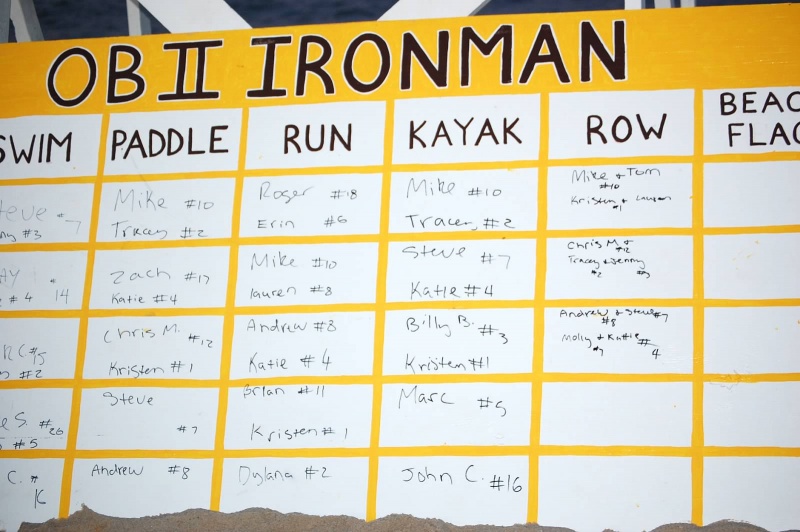 OB II IRONMAN
SWIM PADDLE RUN KAYAK ROW BEAC FLAG
Mike #10 Roger #18 Mike #10 Mike + Tom #10
#3 Tracey #2 Erin #6 Tracey #2 Kristen + Lauren #1
Zach #17 Mike #10 Steve #7 Chris M. + #12
#4 14 Katie #4 lauren #8 Katie #4 Tracey + Jenny #2 #3
Chris M. #12 Andrew #8 Billy B. #3 Andrew + Steve #7 #8
#2 Kristen #1 Katie #4 Kristen #1 Molly + Katie #7 #4
S. #26 Steve Brian #11 Marc #5
#5 #7 Kristen #1
C. Andrew #8 Dylana #2 John C. #16